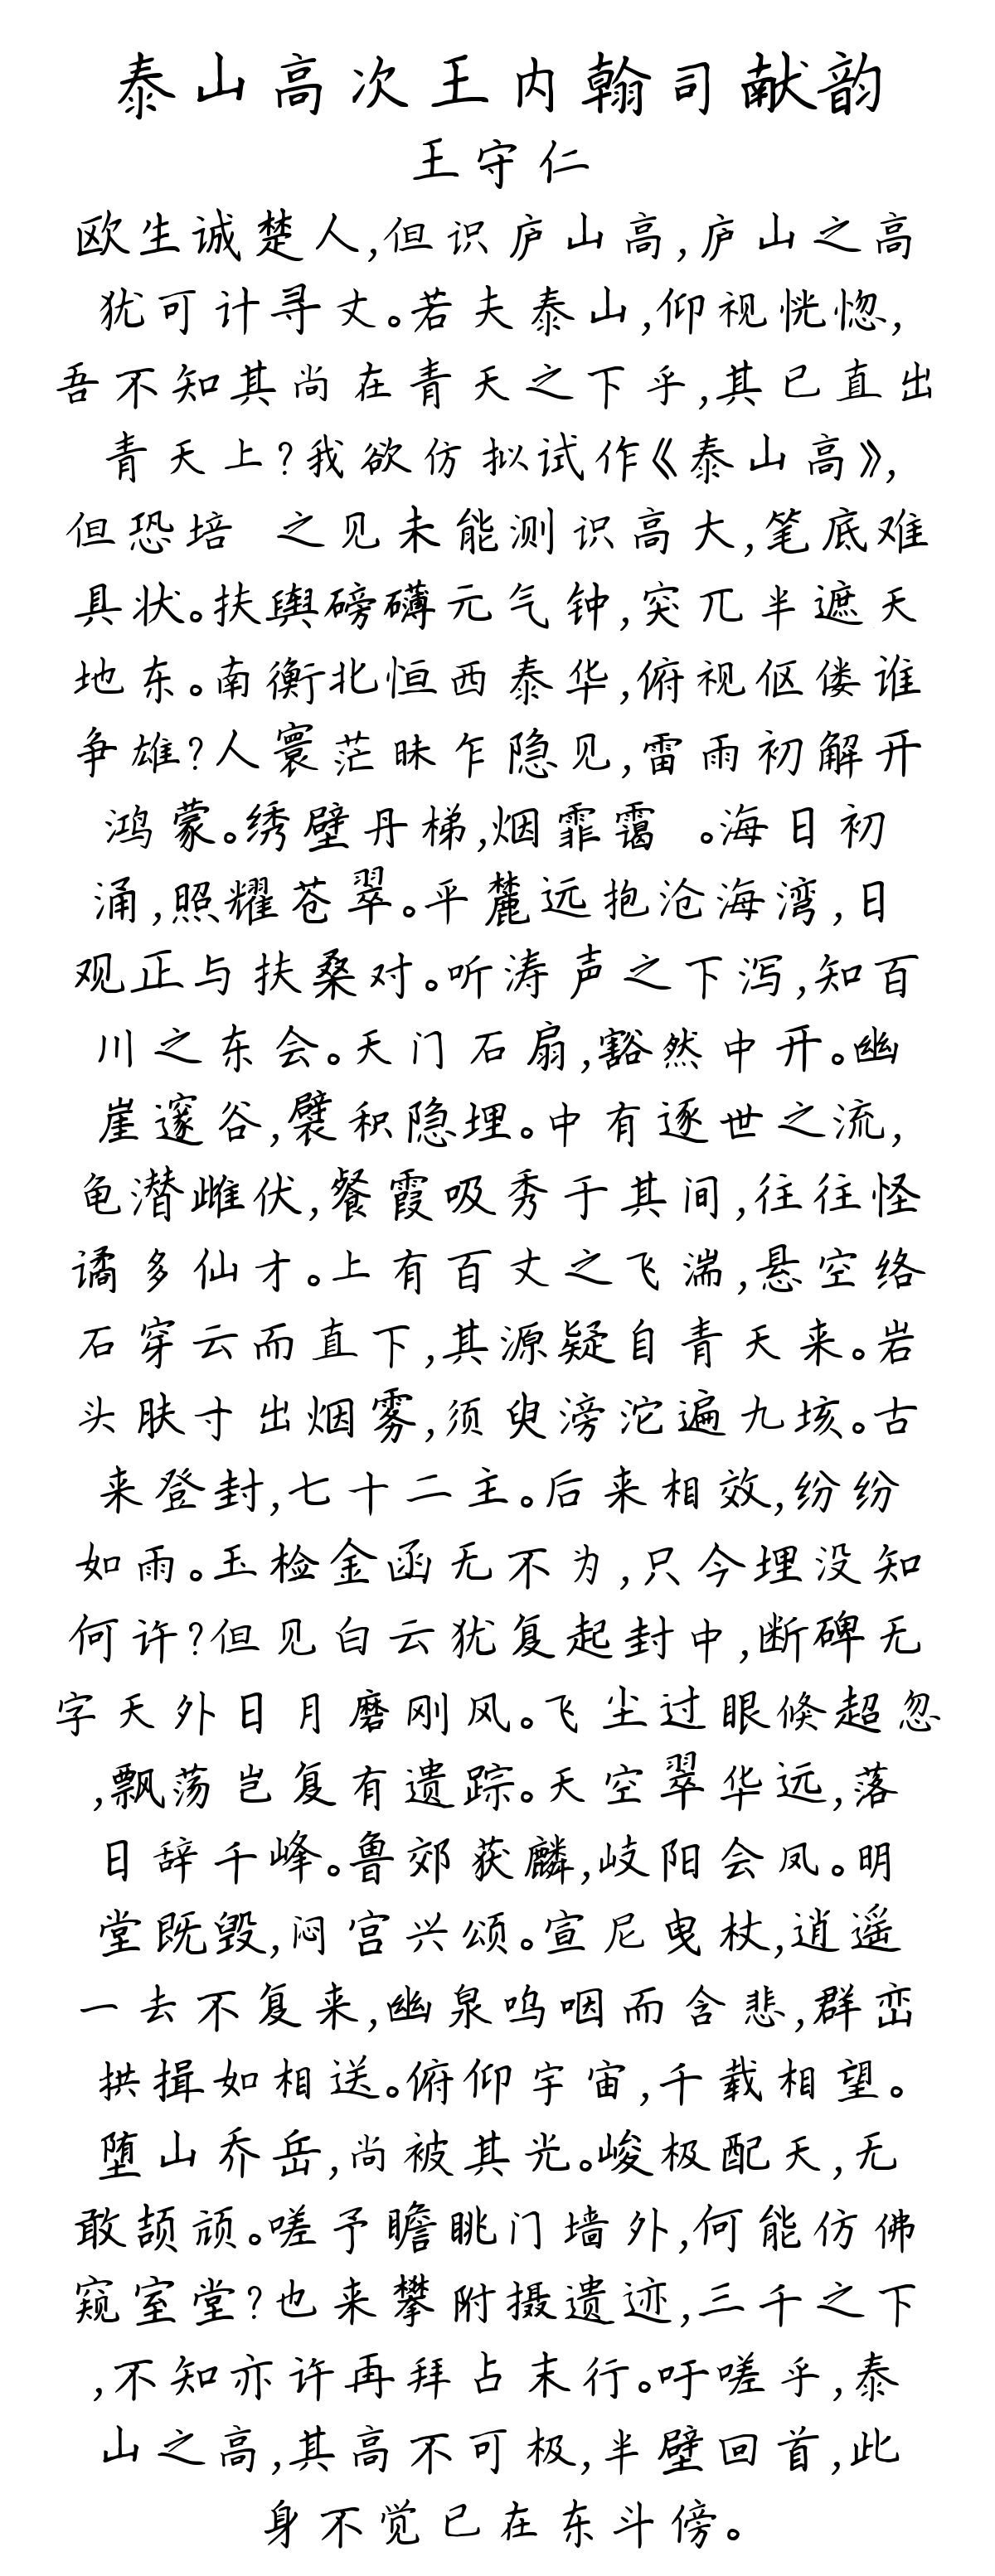 泰山高次王内翰司献韵
王守仁
欧生诚楚人,但识庐山高,庐山之高
犹可计寻丈。若夫泰山,仰视恍惚,
吾不知其尚在青天之下乎,其已直出
青天上?我欲仿拟试作《泰山高》,
但恐培 之见未能测识高大,笔底难
具状。扶舆磅礴元气钟,突兀半遮天
地东。南衡北恒西泰华,俯视伛偻谁
争雄?人寰茫昧乍隐见,雷雨初解开
鸿蒙。绣壁丹梯,烟霏霭 。海日初
涌,照耀苍翠。平麓远抱沧海湾,日
观正与扶桑对。听涛声之下泻,知百
川之东会。天门石扇,豁然中开。幽
崖邃谷,襞积隐埋。中有逐世之流,
龟潜雌伏,餐霞吸秀于其间,往往怪
谲多仙才。上有百丈之飞湍,悬空络
石穿云而直下,其源疑自青天来。岩
头肤寸出烟雾,须臾滂沱遍九垓。古
来登封,七十二主。后来相效,纷纷
如雨。玉检金函无不为,只今埋没知
何许?但见白云犹复起封中,断碑无
字天外日月磨刚风。飞尘过眼倏超忽
,飘荡岂复有遗踪。天空翠华远,落
日辞千峰。鲁郊获麟,岐阳会凤。明
堂既毁,闷宫兴颂。宣尼曳杖,逍遥
一去不复来,幽泉呜咽而含悲,群峦
拱揖如相送。俯仰宇宙,千载相望。
堕山乔岳,尚被其光。峻极配天,无
敢颉颃。嗟予瞻眺门墙外,何能仿佛
窥室堂?也来攀附摄遗迹,三千之下
,不知亦许再拜占末行。吁嗟乎,泰
山之高,其高不可极,半壁回首,此
身不觉已在东斗傍。